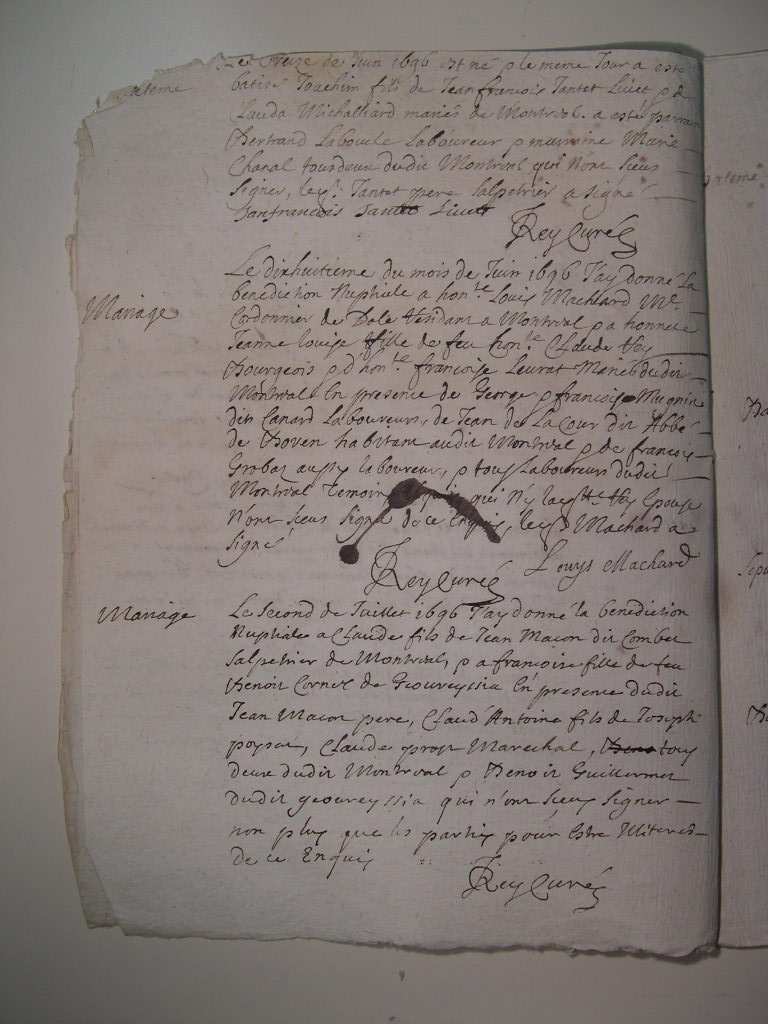 Le Treize de Juin 1696 est né p le meme Jour a esté
bateme
batisé Joachim fils de Jean francois Tantet Livet p d
Lauda Michalliard mariés de Montreal. a esté parrain
Bertrand Laboule Laboureur p marraine Marie
Chanal tous deux dudit Montreal qui n'ont sceus
signer, led. Tantet pere salpetrier a signé
Janfrancois Livet
Rey Curé
Mariage
Le dixhuitieme du mois de Juin 1696 J'ay donné la
benediction Nuptiale a hon.te Louis Machard M.e
Cordonnier de Dole residant a Montreal p a honnete
Jeanne louise fille de feu hon.te Claude
Bourgeois p d'hon.te francoise Leurat Mariés dudit
Montreal En presence de George p francois Mugnier
dits Canard Laboureurs, de Jean de La Cour dit Abbé
de Boyen habitant audit Montreal p de francois
Grobaz aussy laboureur, p tous Laboureurs dudit
Montreal Temoins qui Epouse
N'ont sceus signer de ce Enquis, led Machard a
signé
Louys Machard
Rey Curé
Mariage
Le Second de Juillet 1696 J'ay donné la benediction
Nuptiale a Claude fils de Jean Macon dit Combet
salpetrier de Montreal, p a francoise fille de feu
Benoit Cornet de Geovreyssia En presence dudit
Jean Macon pere, Claud' Antoine fils de Joseph
Claude Marechal, tous
deux dudit Montreal p Benoit Guillermet
dudit geovreyssia qui n'ont sceus signer
non plus que les parties pour Estre Illiteres
de ce Enquis
Rey Curé